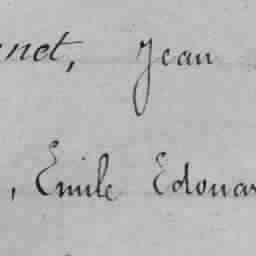 net, Jean
, Emile Edouar